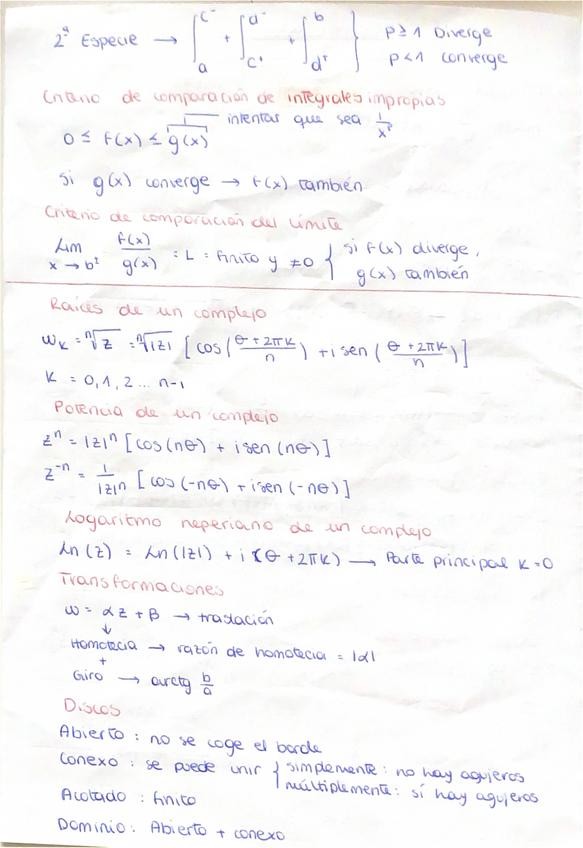 2ª Especie → ∫ₐᶜ⁻ + ∫_c⁺ᵃ⁻ + ∫_d⁺ᵇ } p ≥ 1 Diverge
p < 1 converge
Criterio de comparación de integrales impropias
intentar que sea 1/xᵖ
0 ≤ f(x) ≤ g(x)
si g(x) converge → f(x) también
Criterio de comparación del límite
Lim x → b² f(x)/g(x) = L = finito y ≠ 0 { si f(x) diverge,
g(x) también
Raíces de un complejo
wₖ = ⁿ√z = ⁿ√|z| [cos((θ + 2πk)/n) + i sen((θ + 2πk)/n)]
K = 0, 1, 2 ... n-1
Potencia de un complejo
zⁿ = |z|ⁿ [cos(nθ) + i sen(nθ)]
z⁻ⁿ = 1/|z|ⁿ [cos(-nθ) + i sen(-nθ)]
Logaritmo neperiano de un complejo
Ln(z) = Ln(|z|) + i(θ + 2πk) → Parte principal K=0
Transformaciones
w = αz + β → traslación
↓
Homotecia → razón de homotecia = |α|
+
Giro → arctg b/a
Discos
Abierto : no se coge el borde
Conexo : se puede unir { simplemente : no hay agujeros
múltiplemente : sí hay agujeros
Acotado : finito
Dominio : Abierto + conexo